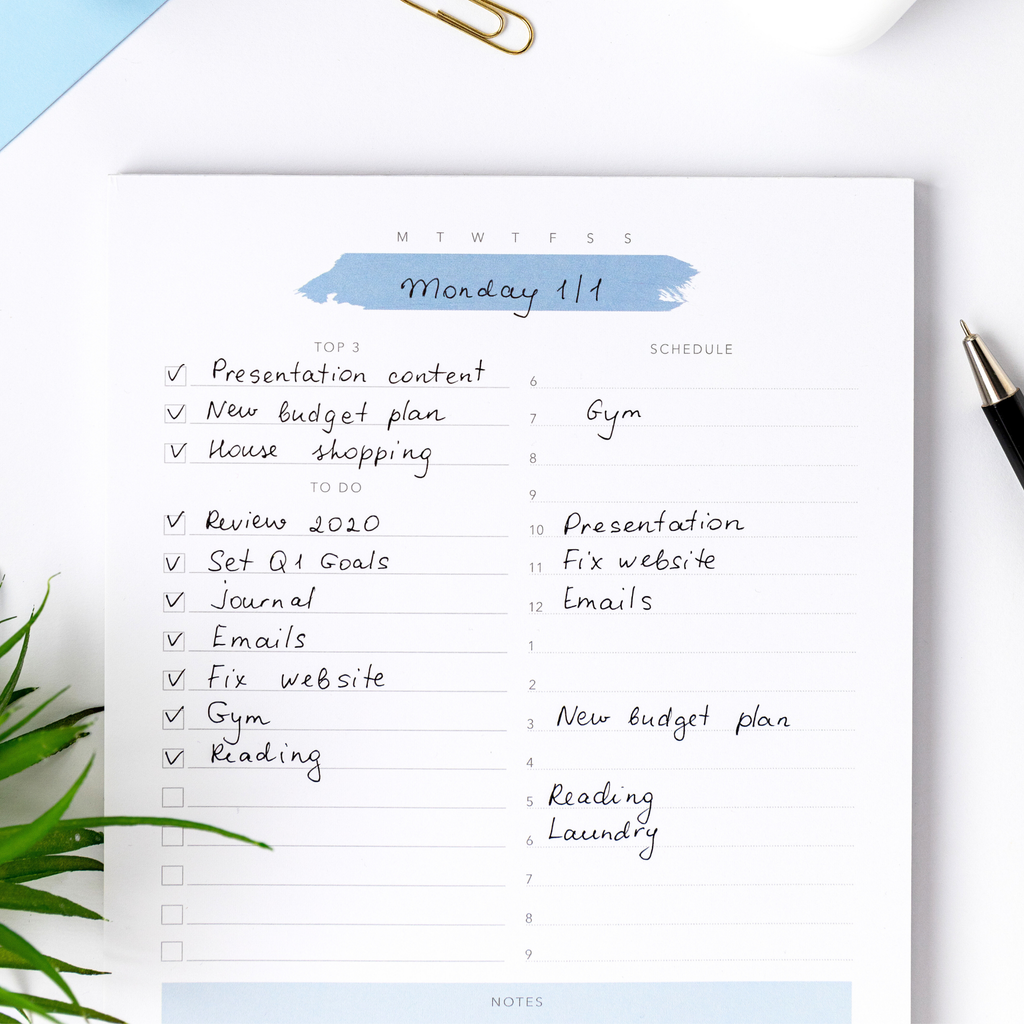 M T W T F S S
Monday 1/1
TOP 3
Presentation content
New budget plan
House shopping
TO DO
Review 2020
Set Q1 Goals
Journal
Emails
Fix website
Gym
Reading
SCHEDULE
6
7 Gym
8
9
10 Presentation
11 Fix website
12 Emails
1
2
3 New budget plan
4
5 Reading
6 Laundry
7
8
9
NOTES